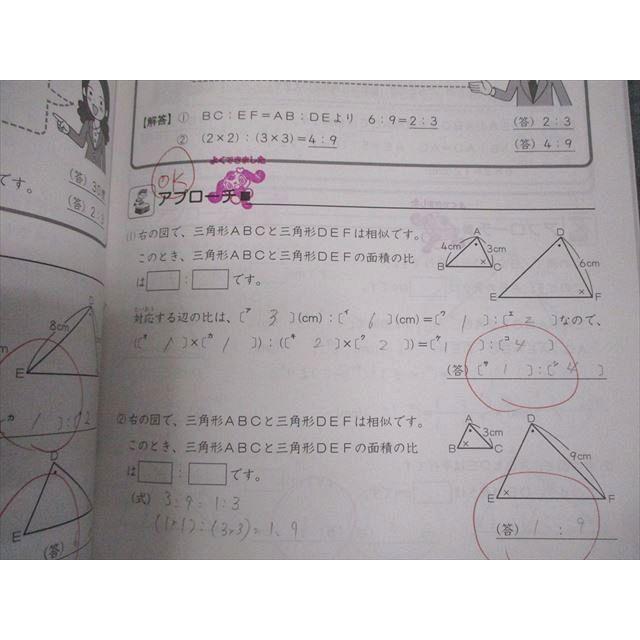 【解答】① BC：EF＝AB：DEより 6：9＝2：3 (答) 2：3
② (2×2)：(3×3)＝4：9 (答) 4：9
です。
(答) 2：3
OK
よくできました
アプローチ
(1) 右の図で、三角形ABCと三角形DEFは相似です。
このとき、三角形ABCと三角形DEFの面積の比
は□：□です。
A 4cm 3cm B C
D 6cm E F
対応する辺の比は、〔ア 3 〕(cm)：〔イ 6 〕(cm)＝〔ウ 1 〕：〔エ 2 〕なので、
(〔オ 1 〕×〔カ 1 〕)：(〔キ 2 〕×〔ク 2 〕)＝〔ケ 1 〕：〔コ 4 〕
(答)〔サ 1 〕：〔シ 4 〕
(2) 右の図で、三角形ABCと三角形DEFは相似です。
このとき、三角形ABCと三角形DEFの面積の比
は□：□です。
A 3cm B C
D 9cm E F
(式) 3：9＝1：3
(1×1)：(3×3)＝1：9
(答) 1 : 9
D
8cm
E
カ 1 〕：〔 2
D
E
(答)